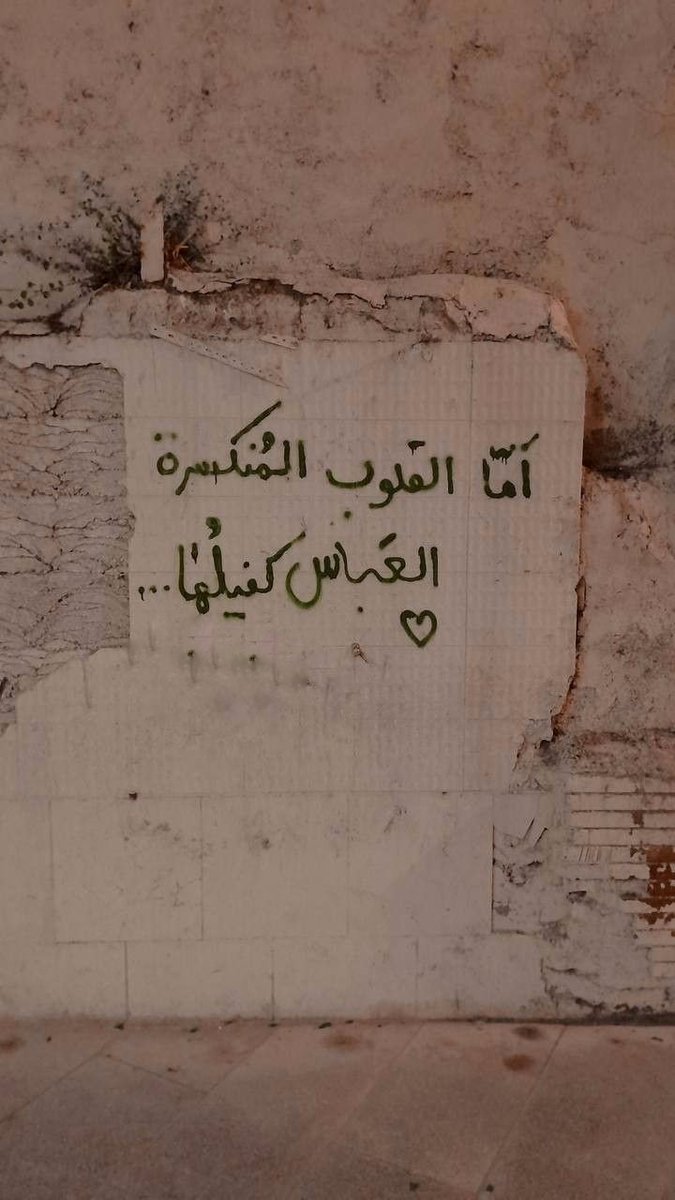 أمّا القلوب المُنكسرة
العَباس كفيلُها...